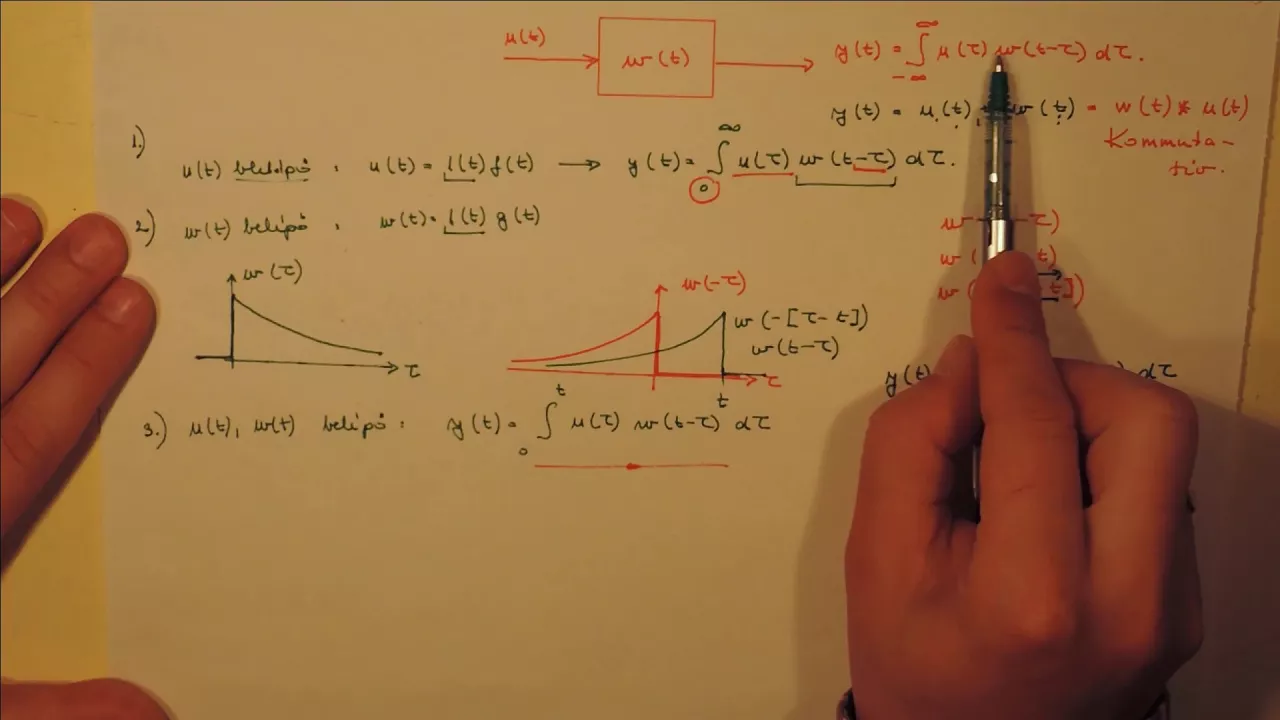 u(t)
w(t)
y(t) = ∫_{-∞}^{∞} u(τ) w(t-τ) dτ.
y(t) = u(t) w(t) = w(t) * u(t)
Kommuta-
tív.
1.)
u(t) belépő : u(t) = 1(t) f(t) → y(t) = ∫_0^∞ u(τ) w(t-τ) dτ.
2.) w(t) belépő : w(t) = 1(t) g(t)
w(τ)
τ
w(-τ)
w(-[τ-t])
w(t-τ)
t
τ
w -τ)
w( t)
w( t])
y(t) dτ
3.) u(t), w(t) belépő : y(t) = ∫_0^t u(τ) w(t-τ) dτ